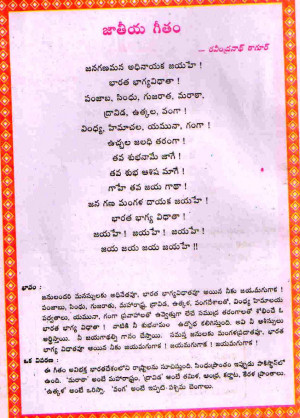 జాతీయ గీతం
— రవీంద్రనాథ్ ఠాగూర్
జనగణమన అధినాయక జయహే !
భారత భాగ్యవిధాతా !
పంజాబ, సింధు, గుజరాత, మరాఠా,
ద్రావిడ, ఉత్కల, వంగా !
వింధ్య, హిమాచల, యమునా, గంగా !
ఉచ్ఛల జలధి తరంగా !
తవ శుభనామే జాగే !
తవ శుభ ఆశిష మాగే !
గాహే తవ జయ గాథా !
జన గణ మంగళ దాయక జయహే !
భారత భాగ్య విధాతా !
జయహే ! జయహే ! జయహే !
జయ జయ జయ జయహే !!
భావం :
జనులందరి మనస్సులకు అధినేతవూ, భారత భాగ్యవిధాతవూ అయిన నీకు జయమగుగాక !
పంజాబు, సింధు, గుజరాతు, మహారాష్ట్ర, ద్రావిడ, ఉత్కళ, వంగదేశాలతో, వింధ్య హిమాలయ
పర్వతాలు, యమునా, గంగా ప్రవాహాలతో ఉవ్వెత్తుగా లేచే సముద్ర తరంగాలతో శోభించే ఓ
భారత భాగ్య విధాతా ! వాటికి నీ శుభనామం ఉద్బోధ కలిగిస్తుంది. అవి నీ ఆశిస్సులు
అర్థిస్తాయి. నీ జయగాథల్ని గానం చేస్తాయి. సమస్త జనులకు మంగళప్రదాతవూ, భారత
భాగ్య విధాతవూ అయిన నీకు జయమగుగాక ! జయమగుగాక ! జయమగుగాక !
ఒక వివరణ :
ఈ గీతం అవిభక్త భారతదేశంలోని రాష్ట్రాలను సూచిస్తుంది. సింధుప్రాంతం ఇప్పుడు పాకిస్తాన్‌లో
ఉంది. 'మరాఠా' అంటే మహారాష్ట్రం, 'ద్రావిడ' అంటే తమిళ, ఆంధ్ర, కన్నడ, కేరళ ప్రాంతాలు.
'ఉత్కళ' అంటే ఒరిస్సా. 'వంగ' అంటే ఇప్పటి పశ్చిమ బెంగాలు.